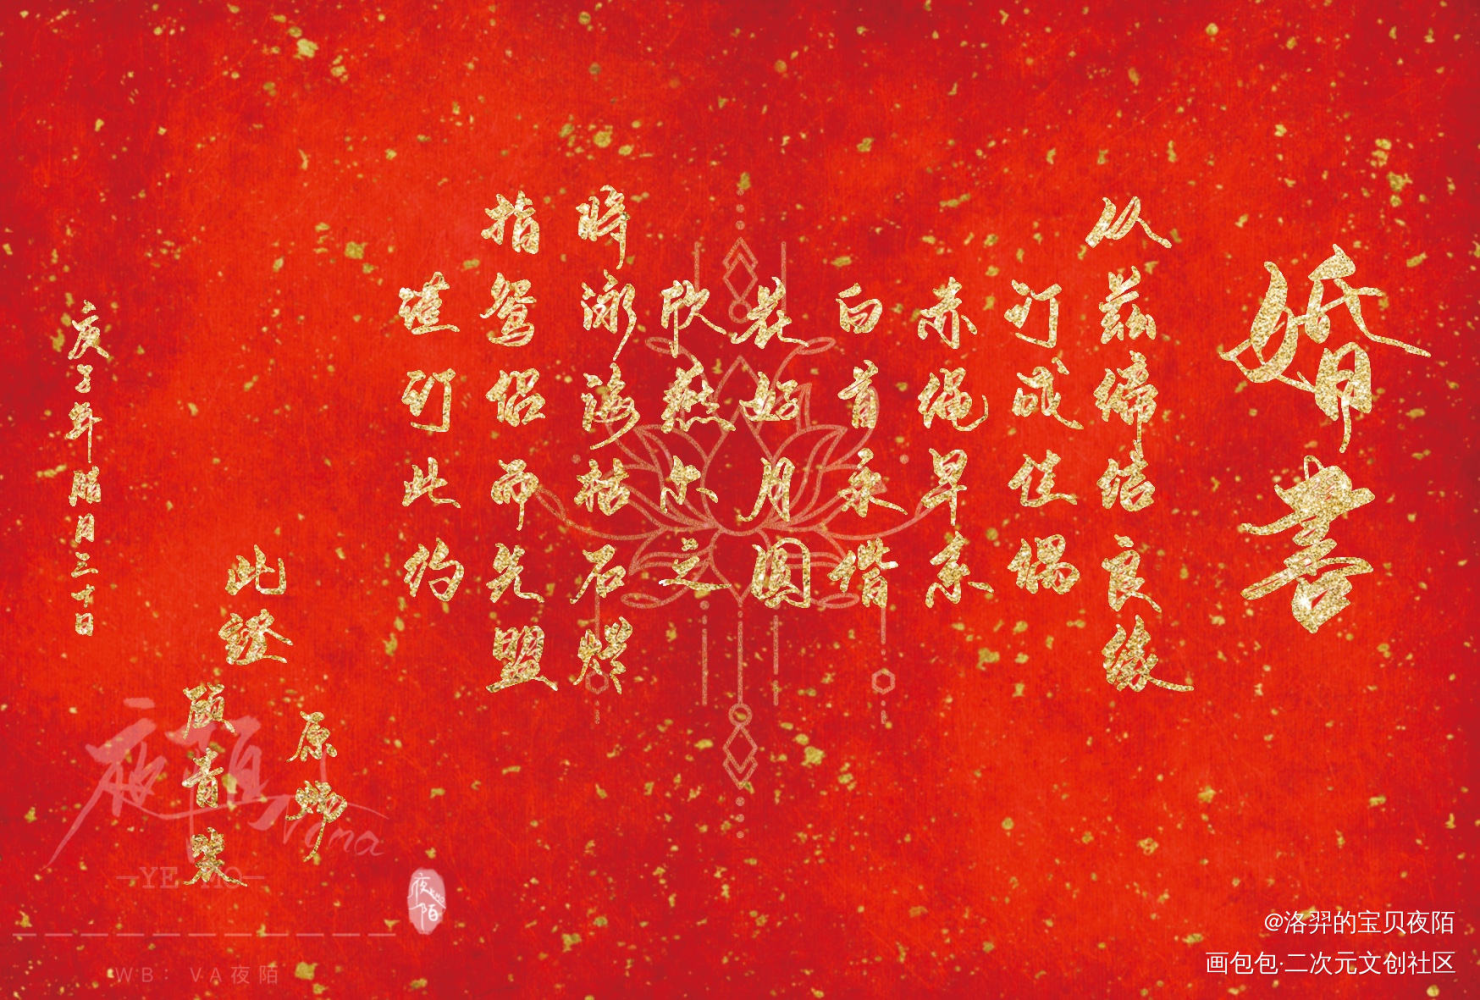 婚書
从兹缔结良缘
订成佳偶
赤绳早系
白首永偕
花好月圆
欣燕尔之
将泳海枯石烂
指鸳侣而先盟
谨订此约
此證
原炀
顾青裴
庚子年腊月三十日
夜陌
Vama
YE MO
夜陌
WB：VA夜陌
@洛羿的宝贝夜陌
画包包·二次元文创社区